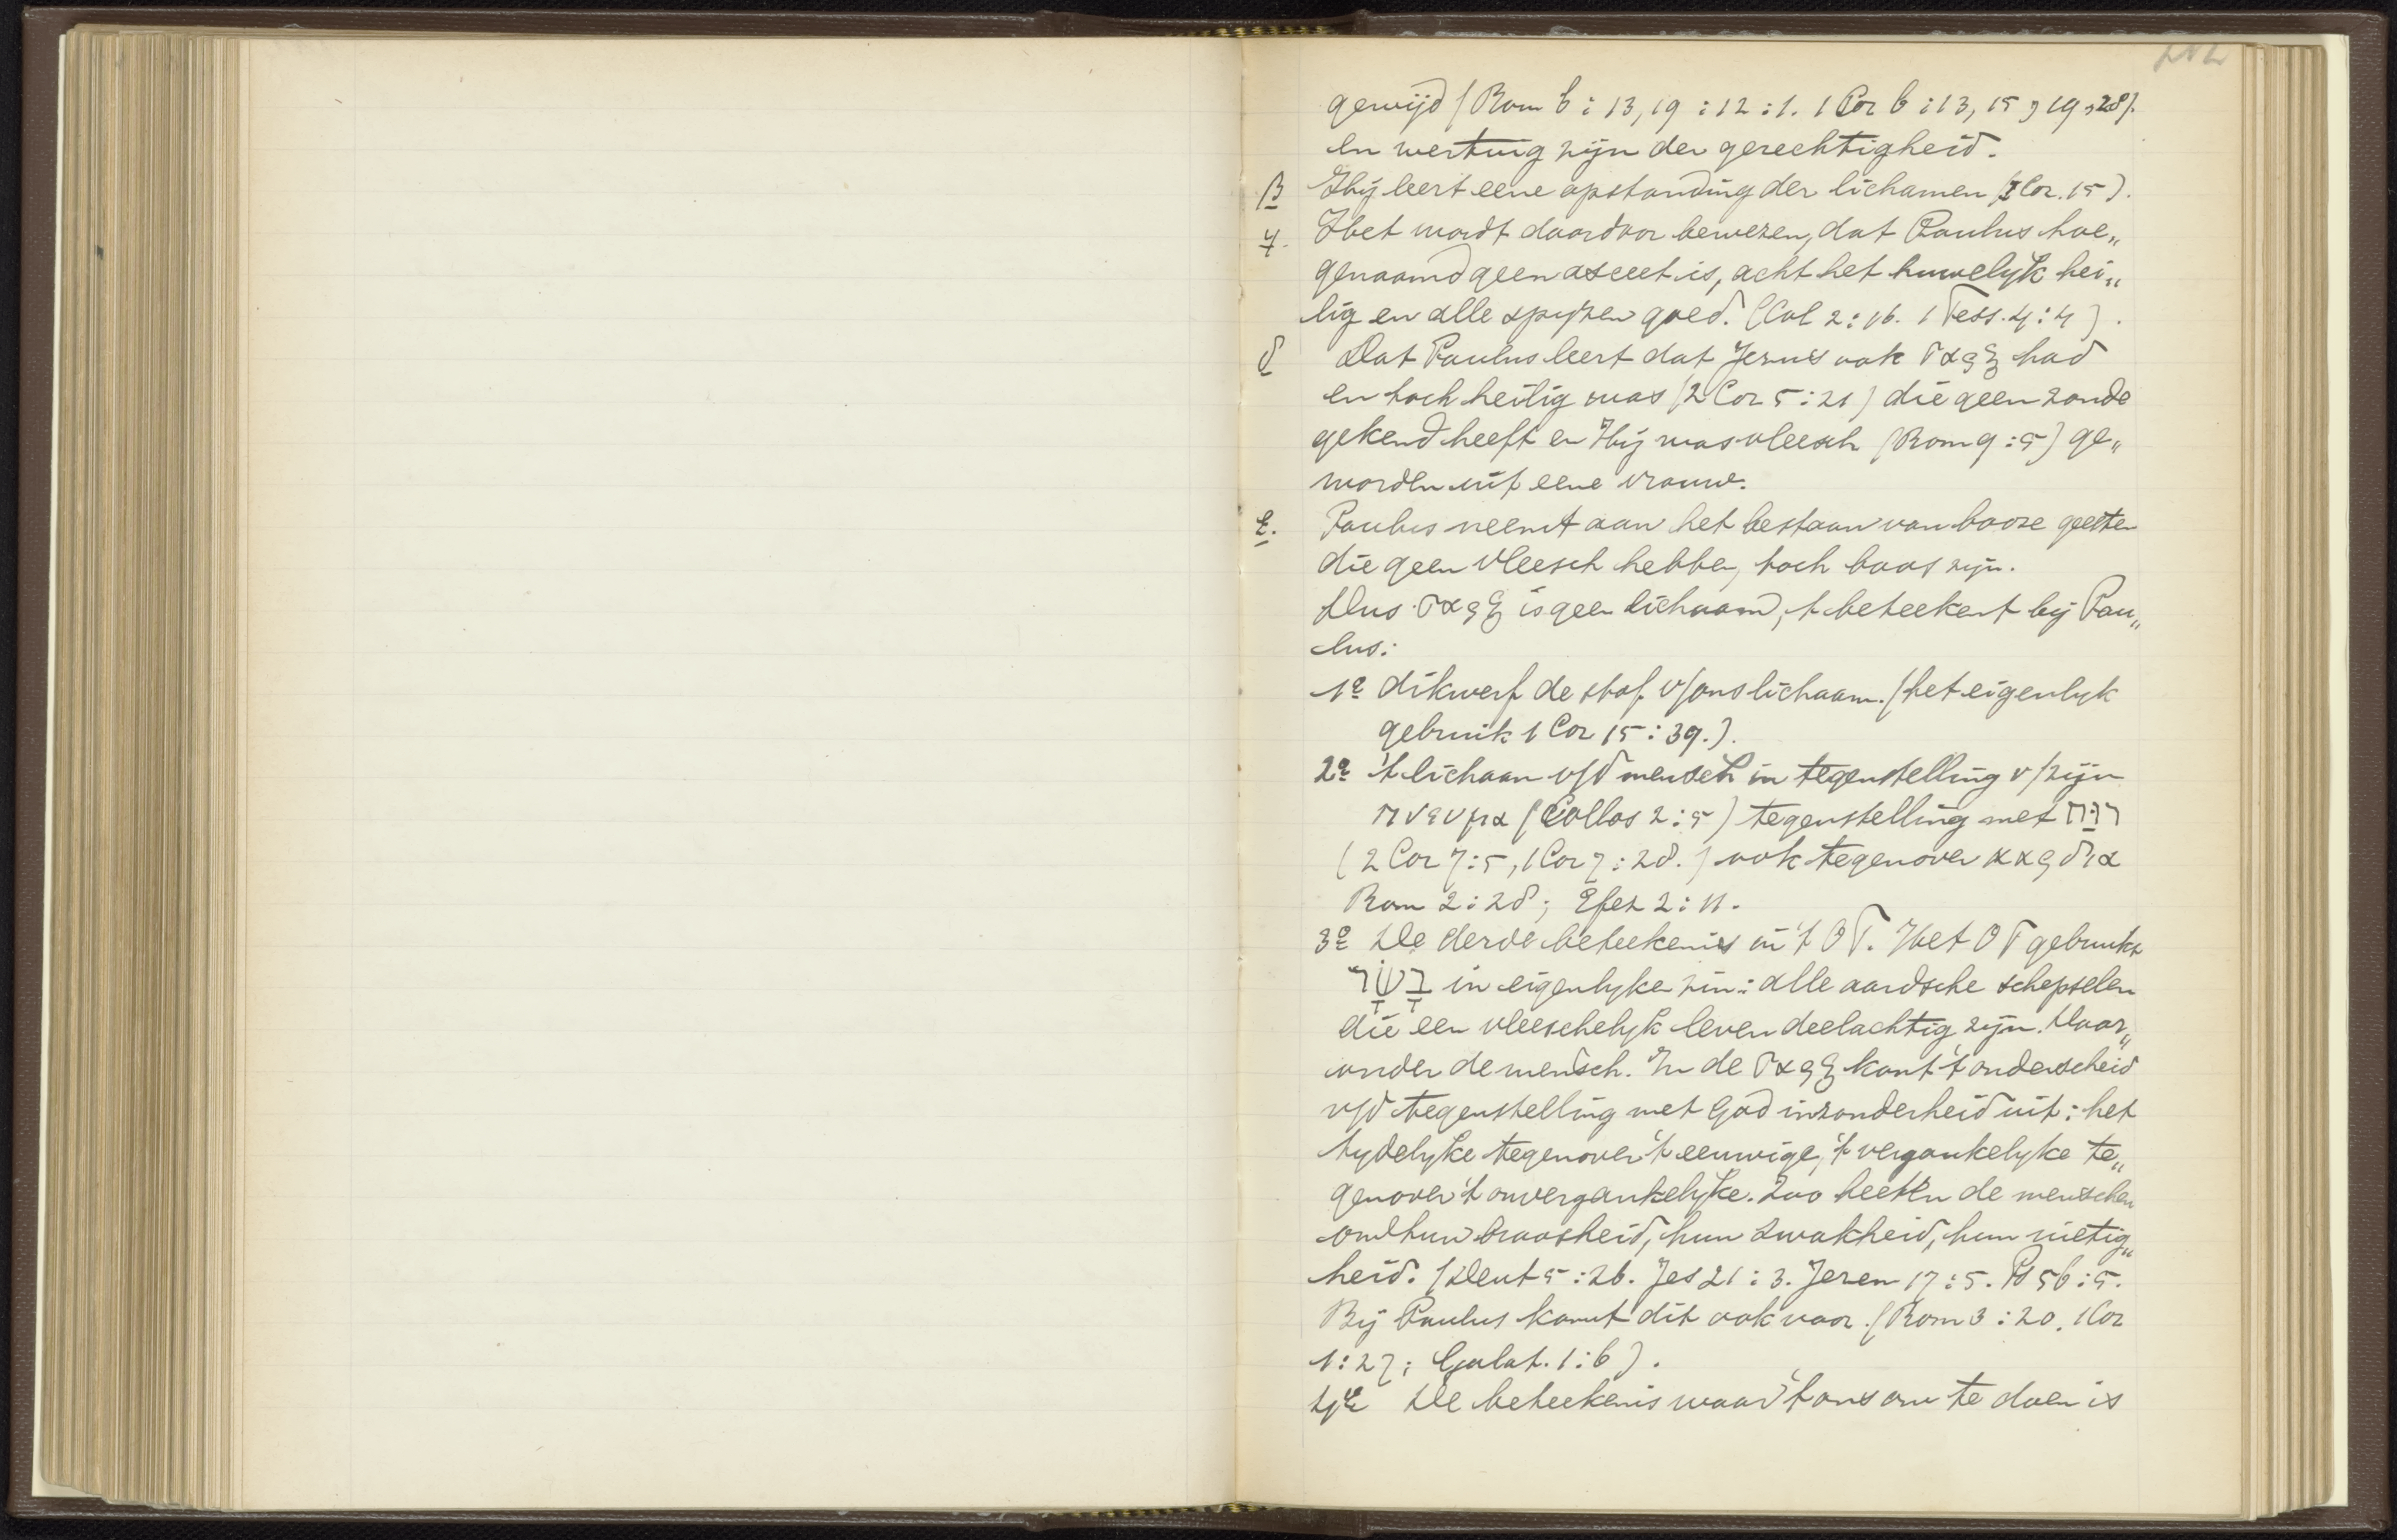 gewijd (Rom 6:13, 19 : 12 : 1. 1 Cor 6 : 13, 15, 19, 20).
en werktuig zijn der gerechtigheid.
β Hij leert eene opstanding der lichamen (1 Cor. 15).
γ. Het wordt daardoor bewezen, dat Paulus hoe„
genaamd geen asceet is, acht het huwelyk hei„
lig en alle spyzen goed. (Col 2:16. 1 Tess. 4:4).
δ Dat Paulus leert dat Jezus ook σαρξ had
en toch heilig was (2 Cor 5:21) die geen zonde
gekend heeft en Hij was vleesch (Rom 9:5) ge„
worden uit eene vrouw.
ε. Paulus neemt aan het bestaan van booze geesten
die geen vleesch hebben, toch boos zijn.
Dus σαρξ is geen lichaam, 't beteekent bij Pau„
lus:
1e dikwerf de stof v/ons lichaam. (het eigenlyk
gebruik 1 Cor 15:39.).
2e 't lichaam v/d mensch in tegenstelling v/zijn
πνευμα (Collos 2:5) tegenstelling met רוּחַ
(2 Cor 7:5, 1 Cor 7:28.) ook tegenover καρδια
Rom 2:28; Efez 2:11.
3e De derde beteekenis in 't O T. Het O T gebruikt
בָּשָׂר in eigenlyke zin: alle aardsche schepselen
die een vleeschelyk leven deelachtig zijn. Daar„
onder de mensch. In de σαρξ komt 't onderscheid
v/d tegenstelling met God inzonderheid uit: het
tydelyke tegenover 't eeuwige, 't vergankelyke te„
genover 't onvergankelyke. Zoo heeten de menschen
om hun broosheid, hun zwakheid, hun nietig„
heid. (Deut 5:26. Jes 21:3. Jerem 17:5. Ps 56:5.
Bij Paulus komt dit ook voor. (Rom 3:20. 1 Cor
1:27; Galat. 1:6).
4e De beteekenis waar 't ons om te doen is